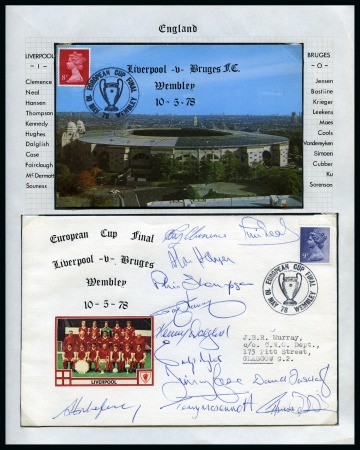 England
LIVERPOOL
- 1 -
Clemence
Neal
Hansen
Thompson
Kennedy
Hughes
Dalglish
Case
Fairclough
McDermott
Souness
BRUGES
- 0 -
Jensen
Bastiine
Krieger
Leekens
Maes
Cools
Vandereyken
Simoen
Cubber
Ku
Sorenson
8p
EUROPEAN CUP FINAL
10 MAY 78 WEMBLEY
Liverpool -v- Bruges F.C.
Wembley
10-5-78
European Cup Final
Liverpool -v- Bruges
Wembley
10-5-78
9p
EUROPEAN CUP FINAL
10 MAY 78 WEMBLEY
LIVERPOOL
J.B.R. Murray,
c/o. C.W.O. Dept.,
173 Pitt Street,
GLASGOW G.2.
Ray Clemence
Phil Neal
Phil Thompson
Kenny Dalglish
Jimmy Case
David Fairclough
Terry McDermott